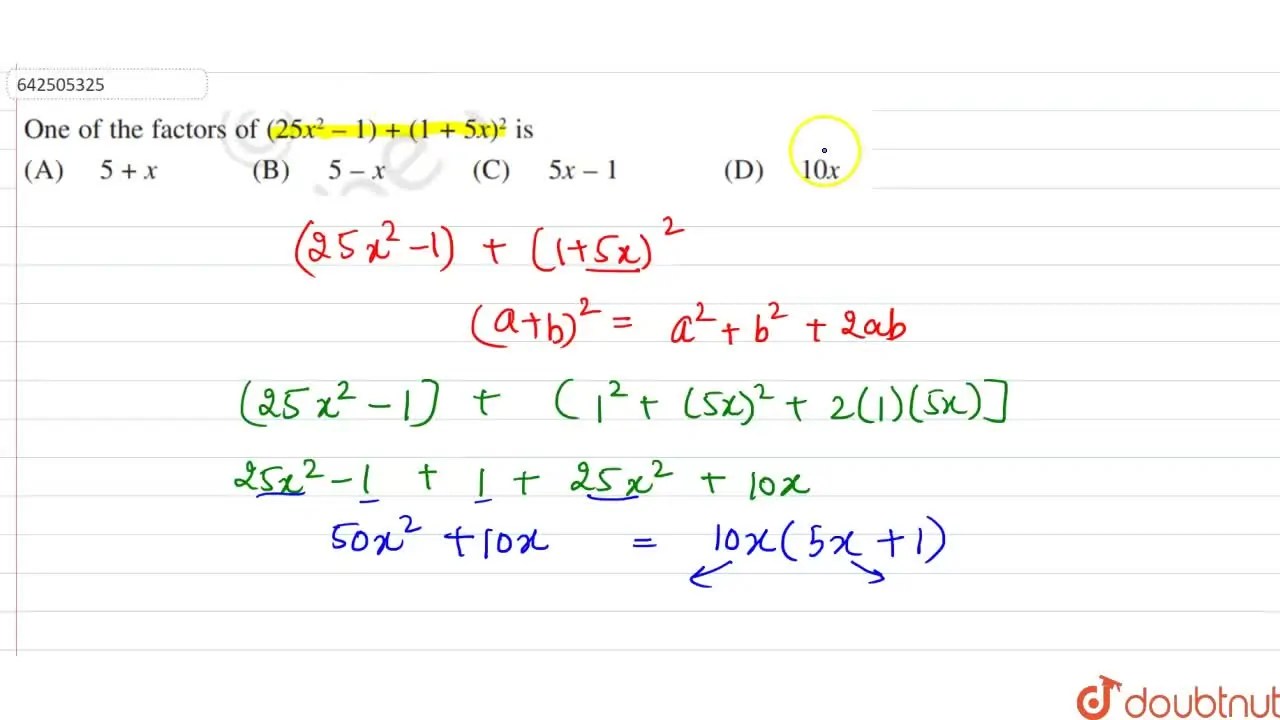 642505325
One of the factors of (25x² – 1) + (1 + 5x)² is
(A) 5 + x (B) 5 – x (C) 5x – 1 (D) 10x
(25x² -1) + (1+5x)²
(a+b)² = a² + b² + 2ab
(25x² - 1] + ( 1² + (5x)² + 2(1)(5x)]
25x² - 1 + 1 + 25x² + 10x
50x² + 10x = 10x(5x + 1)
doubtnut